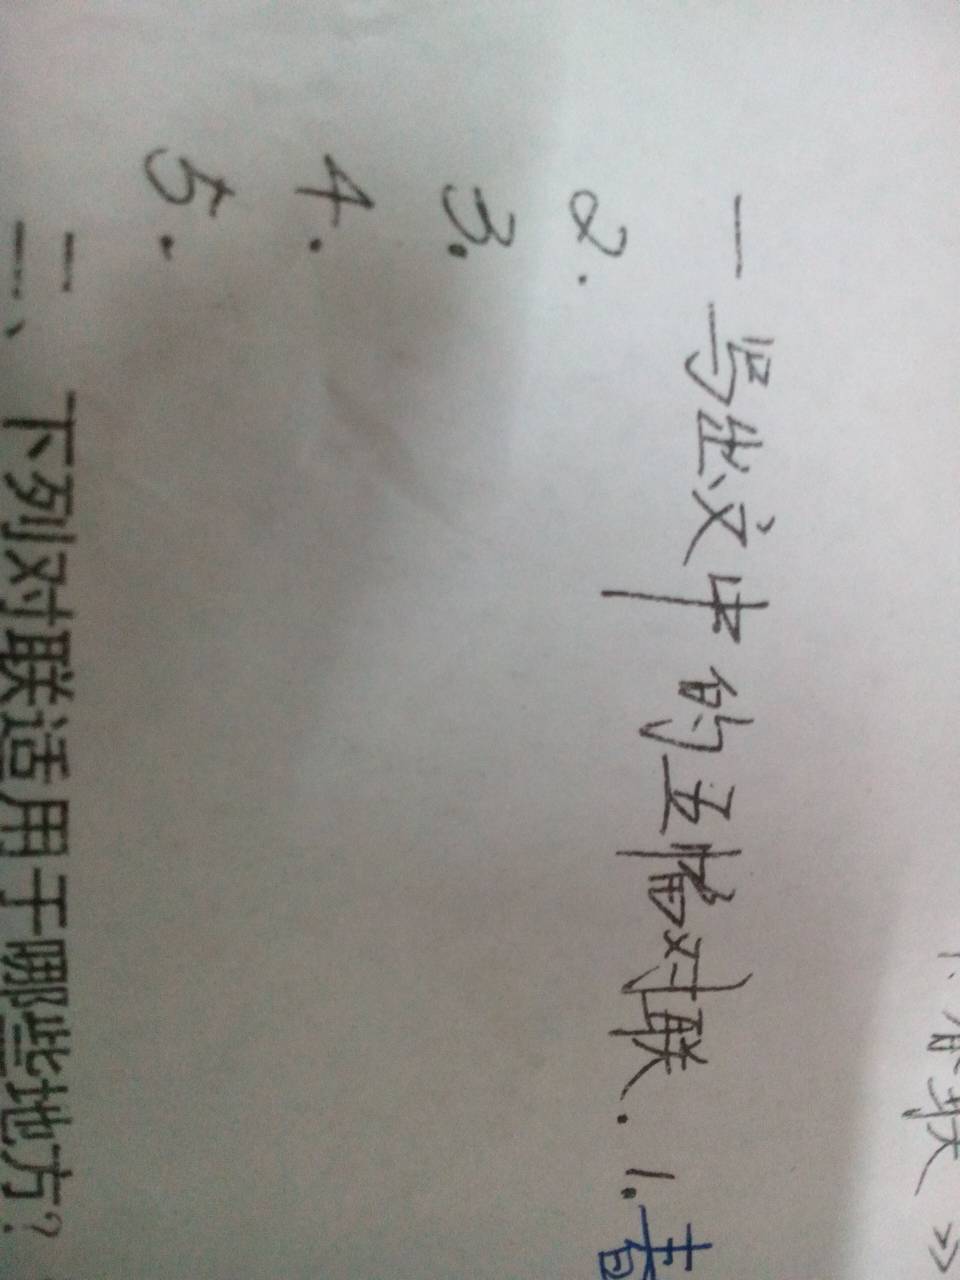 春联》
一写出文中的五幅对联.1.春
2.
3.
4.
5.
二、下列对联适用于哪些地方?